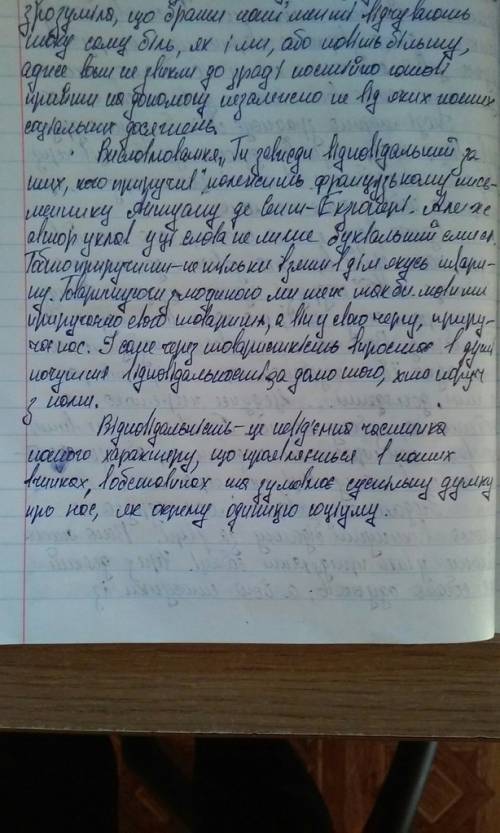 зрозуміла, що брати наші менші відчувають
таку саму біль, як і ми, або навіть більшу,
адже вони не звикли до зради і постійно готові
прийти на допомогу незалежно не від яких наших
соціальних досягнень.
Висловлювання „Ти завжди відповідальний за
тих, кого приручив" належить французькому пись-
меннику Антуану де Сент-Екзюпері. Але же
автор уклав у ці слова не лише буквальний смисл.
Тобто приручити-не тільки взяти в дім якусь твари-
ну. Товаришуючи з людиною ми теж так би мовити
приручаємо свого товариша, а він у свою чергу, приру-
чає нас. І саме через товариськість виростає в душі
почуття відповідальності за долю того, хто поруч
з нами.
Відповідальність-це невід'ємна частинка
нашого характеру, що проявляється в наших
вчинках, в обставинах та зумовлює суспільну думку
про нас, як окрему одиницю соціуму.